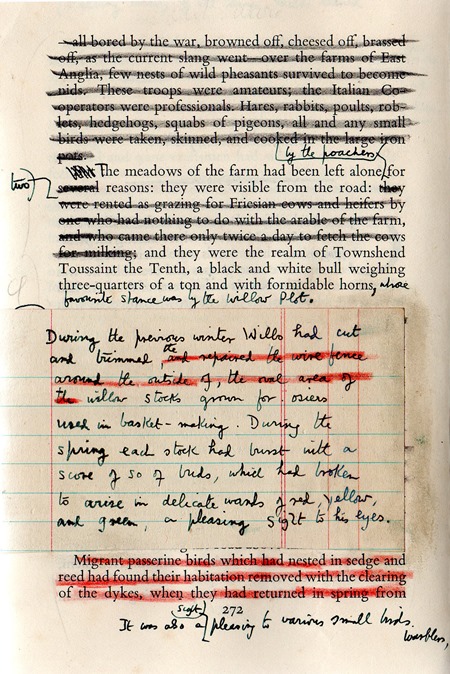 all bored by the war, browned off, cheesed off, brassed
off, as the current slang went—over the farms of East
Anglia, few nests of wild pheasants survived to become
nids. These troops were amateurs; the Italian Co-
operators were professionals. Hares, rabbits, poults, rob-
lets, hedgehogs, squabs of pigeons, all and any small
birds were taken, skinned, and cooked in the large iron
pots.
by the poachers
The meadows of the farm had been left alone for
two
several reasons: they were visible from the road: they
were rented as grazing for Friesian cows and heifers by
one who had nothing to do with the arable of the farm,
and who came there only twice a day to fetch the cows
for milking; and they were the realm of Townshend
Toussaint the Tenth, a black and white bull weighing
three-quarters of a ton and with formidable horns, whose
favourite stance was by the willow Plot.
During the previous winter Wills had cut
and trimmed, the and repaired the wire fence
around the outside of, the oval area of
the willow stocks grown for osiers
used in basket-making. During the
spring each stock had burst with a
score of so of buds, which had broken
to arise in delicate wands of red, yellow,
and green, a pleasing sight to his eyes.
Migrant passerine birds which had nested in sedge and
reed had found their habitation removed with the clearing
of the dykes, when they had returned in spring from
272
sight
It was also a pleasing to various small birds.
warblers,